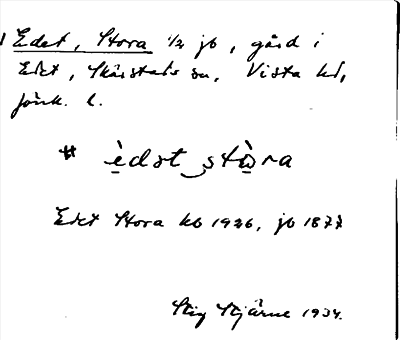 Edet, Stora 1/2 jb, gård i
Edet, Skärstads sn, Vista hd,
Jönk. l.
# èdət stòra
Edet Stora kb 1926, jb 1877
Stig Stjärne 1934.